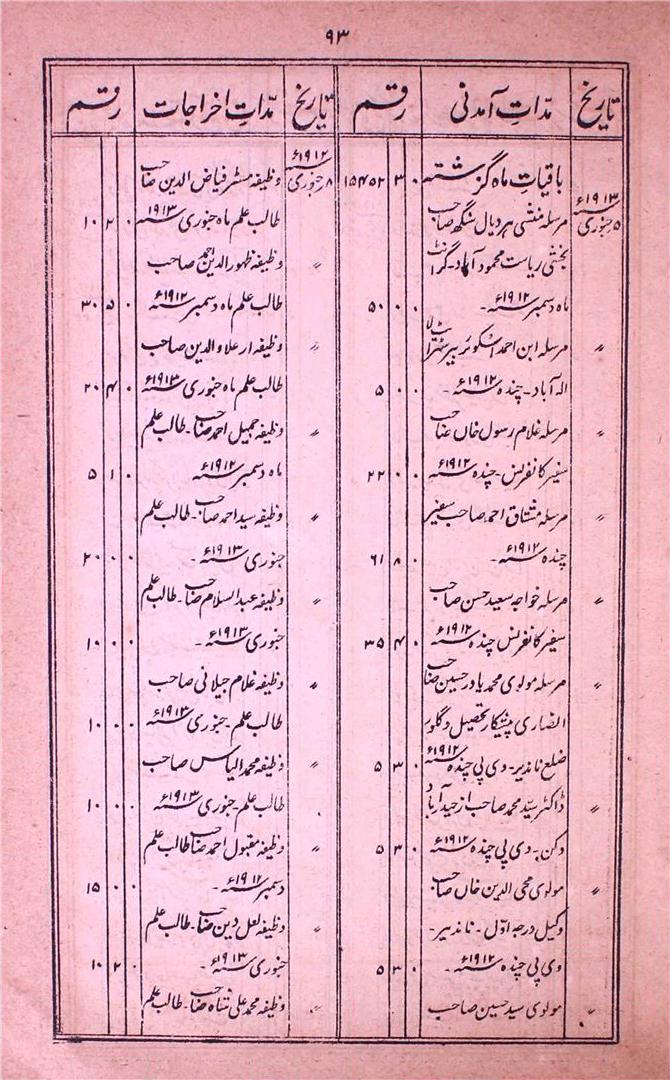 ۹۳
تاریخ مدّاتِ آمدنی رقم
۵ جنوری ۱۹۱۳ء باقیاتِ ماہ گزشتہ ۱۵۴۵۲ ۳ ۰
مرسلہ منشی ہردیال سنگھ صاحب
بخشی ریاست محمود آباد۔ گرانٹ
ماہ دسمبر ۱۹۱۲ء۔ ۵۰ ۰ ۰
〃 مرسلہ ابن احمد اسکوئر بیرسٹرایٹ لا
الہ آباد۔ چندہ ۱۹۱۲ء۔ ۵ ۰ ۰
〃 مرسلہ غلام رسول خاں صاحب
سفیر کانفرنس۔ چندہ ۱۹۱۲ء ۲۲ ۰ ۰
〃 مرسلہ مشتاق احمد صاحب سفیر
چندہ ۱۹۱۲ء۔ ۶۱ ۸ ۰
〃 مرسلہ خواجہ سعید حسن صاحب
سفیر کانفرنس چندہ ۱۹۱۲ء ۳۵ ۴ ۰
〃 مرسلہ مولوی محمد یادر حسین صاحب
انصاری پیشکار تحصیل دگلور
ضلع ناندیر۔ وی پی چندہ ۱۹۱۲ء ۵ ۳ ۰
〃 ڈاکٹر سیّد محمد صاحب از حیدرآباد
دکن۔ وی پی چندہ ۱۹۱۲ء ۵ ۳ ۰
〃 مولوی محی الدین خاں صاحب
وکیل درجہ اوّل۔ ناندیر۔
وی پی چندہ ۱۹۱۲ء۔ ۵ ۳ ۰
〃 مولوی سید حسین صاحب
تاریخ مدّاتِ اخراجات رقم
۸ جنوری ۱۹۱۲ء وظیفہ مسٹر فیاض الدین صاحب
طالب علم ماہ جنوری ۱۹۱۳ء ۱۰ ۲ ۰
〃 وظیفہ ظہور الدین احمد صاحب
طالب علم ماہ دسمبر ۱۹۱۲ء ۳۰ ۵ ۰
〃 وظیفہ ارعلاو الدین صاحب
طالب علم ماہ جنوری ۱۹۱۳ء ۲۰ ۴ ۰
〃 وظیفہ جمیل احمد صاحب۔ طالب علم
ماہ دسمبر ۱۹۱۲ء ۵ ۱ ۰
〃 وظیفہ سید احمد صاحب۔ طالب علم
جنوری ۱۹۱۳ء۔ ۲۰ ۰ ۰
〃 وظیفہ عبدالسلام صاحب۔ طالب علم
جنوری ۱۹۱۳ء۔ ۱۰ ۰ ۰
〃 وظیفہ غلام جیلانی صاحب
طالب علم۔ جنوری ۱۹۱۳ء ۱۰ ۰ ۰
〃 وظیفہ محمد الیاس صاحب
طالب علم جنوری ۱۹۱۳ء ۱۰ ۰ ۰
〃 وظیفہ مقبول احمد صاحب طالب علم
دسمبر ۱۹۱۲ء۔ ۱۵ ۰ ۰
〃 وظیفہ لعل دین صاحب۔ طالب علم
جنوری ۱۹۱۳ء۔ ۱۰ ۲ ۰
〃 وظیفہ محمد علی شاہ صاحب۔ طالب علم